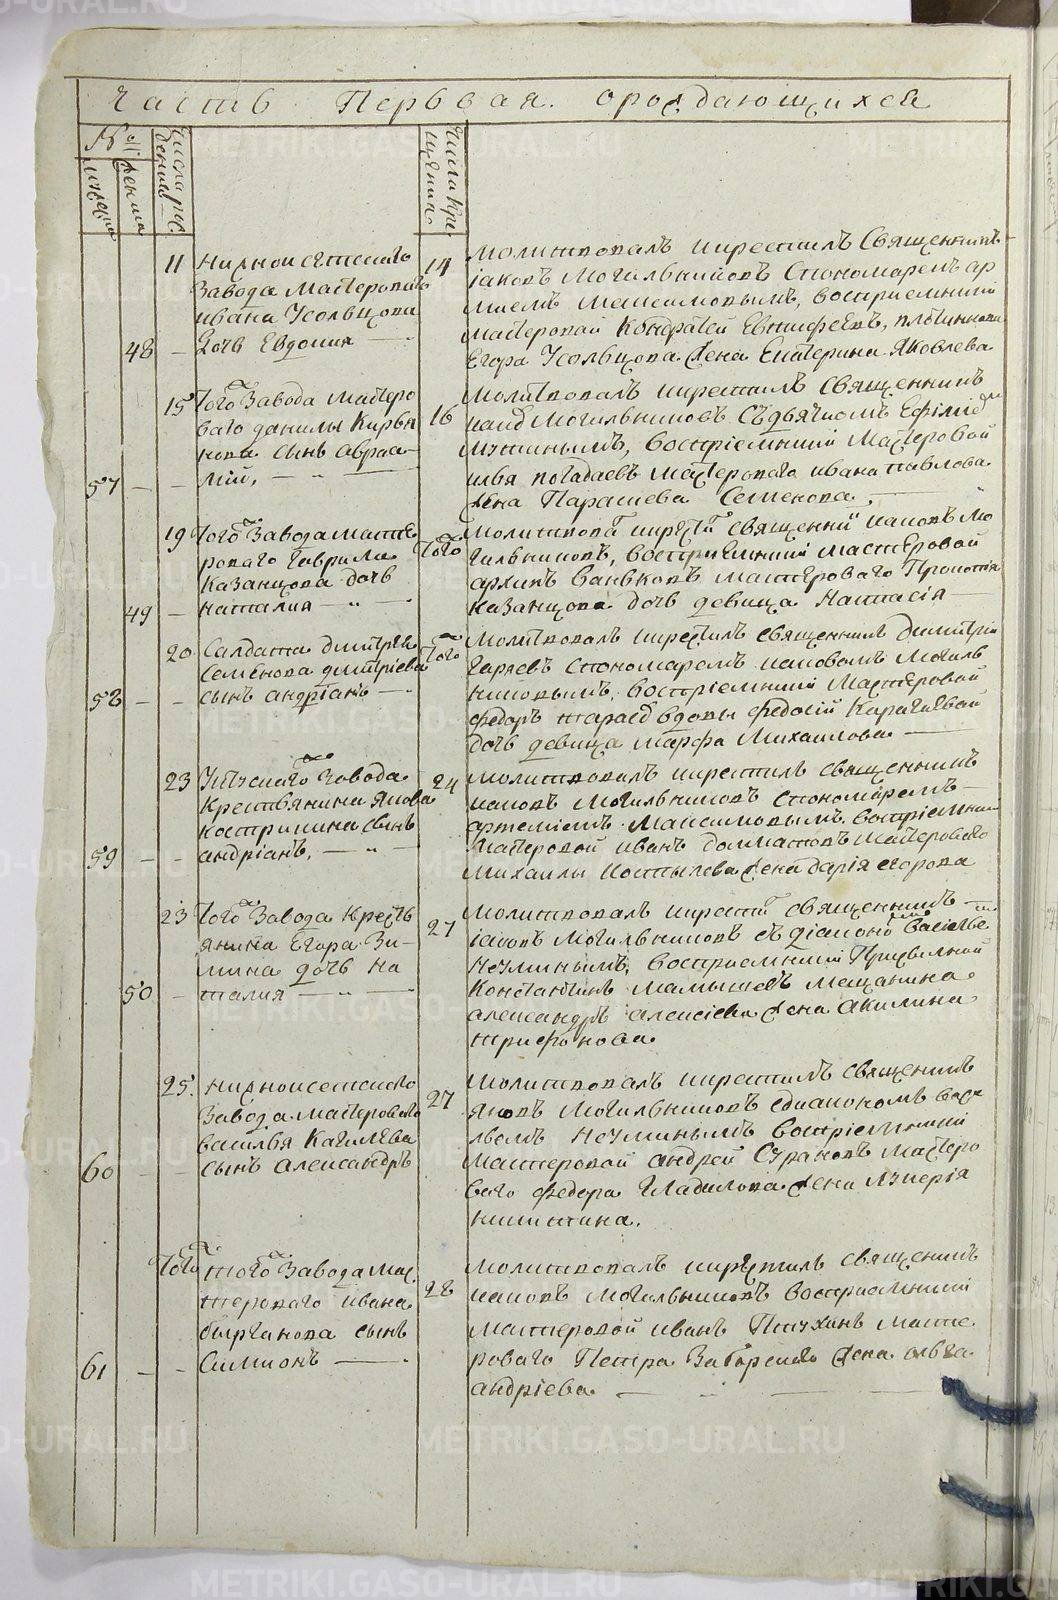 Часть Первая ораждающихся
№
мужеска
женска
Числа рож
дения
Числа кре
щения
11
нижноисетскаго
завода Мастероваго
ивана Усольцова
48
Дочь Евдокия
14
молитвовалъ икрестилъ Священникъ
іаковъ Могильниковъ Спономаремъ ар
Максимовымъ, восприемники
мастеровой Кондратей
Егора Усольцова жена Екатерина Яковлева
15
Того завода мастеро
ваго данилы Кирья
нова сынъ авраа
57
мій,
16
Молитвовалъ икрестилъ священникъ
Могильниковъ Съдьячкомъ
воспріемники Мастеровой
илья мастероваго ивана павлова
жена Парасковья Семенова
19
Того завода масте
роваго гаврила
Казанцова дочь
49
наталия
Того
Молитвова икрести священни иаковъ Мо
гильниковъ, восприемники мастеровой
архипъ Ваньковъ мастероваго Прокопия
Казанцова дочь девица Настасія
20
Салдата димитрея
Семенова дмитриева
58
сынъ андріанъ
Того
Молитвовалъ икрестилъ священникъ Димитрій
Гаряевъ Спономаремъ иаковомъ Могиль
никовымъ, воспріемники Мастеровой
федоръ вдовы федосіи
дочь девица марфа Михаилова
23
завода
Крестьянина Якова
костримина сынъ
59
андріанъ.
24
молитвовалъ икрестилъ священникъ
иаковъ Могильниковъ спономаремъ
артеміемъ Максимовымъ воспріемники
Мастеровой иванъ долматовъ мастероваго
михаилы Костылева жена дарія егорова
23
Того завода кресть
янина Егора Зи
мина дочь на
50
талия
27
молитвовалъ икрести священникъ
іаковъ Могильниковъ съ діакономъ Василье
воспріемники
Константинъ Мамышевъ мещанина
александръ алексіева жена акилина
трифонова.
25
нижноисетскаго
завода мастероваго
василья Кагилева
60
сынъ александръ
27
молитвовалъ икрестилъ священникъ
Яковъ Могильниковъ сдиакономъ васи
льемъ воспріемники
мастеровой андрей мастеро
ваго федора Гладилова жена лукерія
никитина.
Того
того завода мас
тероваго ивана
сынъ
61
Симионъ
28
молитвовалъ икрестилъ священникъ
иаковъ Могильниковъ воспріемники
мастеровой иванъ Птухинъ масте
роваго Петра жена ольга
андріева